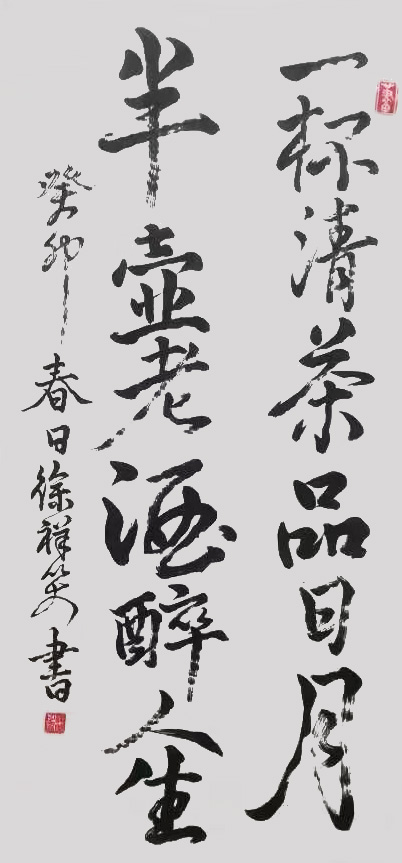 一杯清茶品日月
半壶老酒醉人生
癸卯春日徐祥笑書